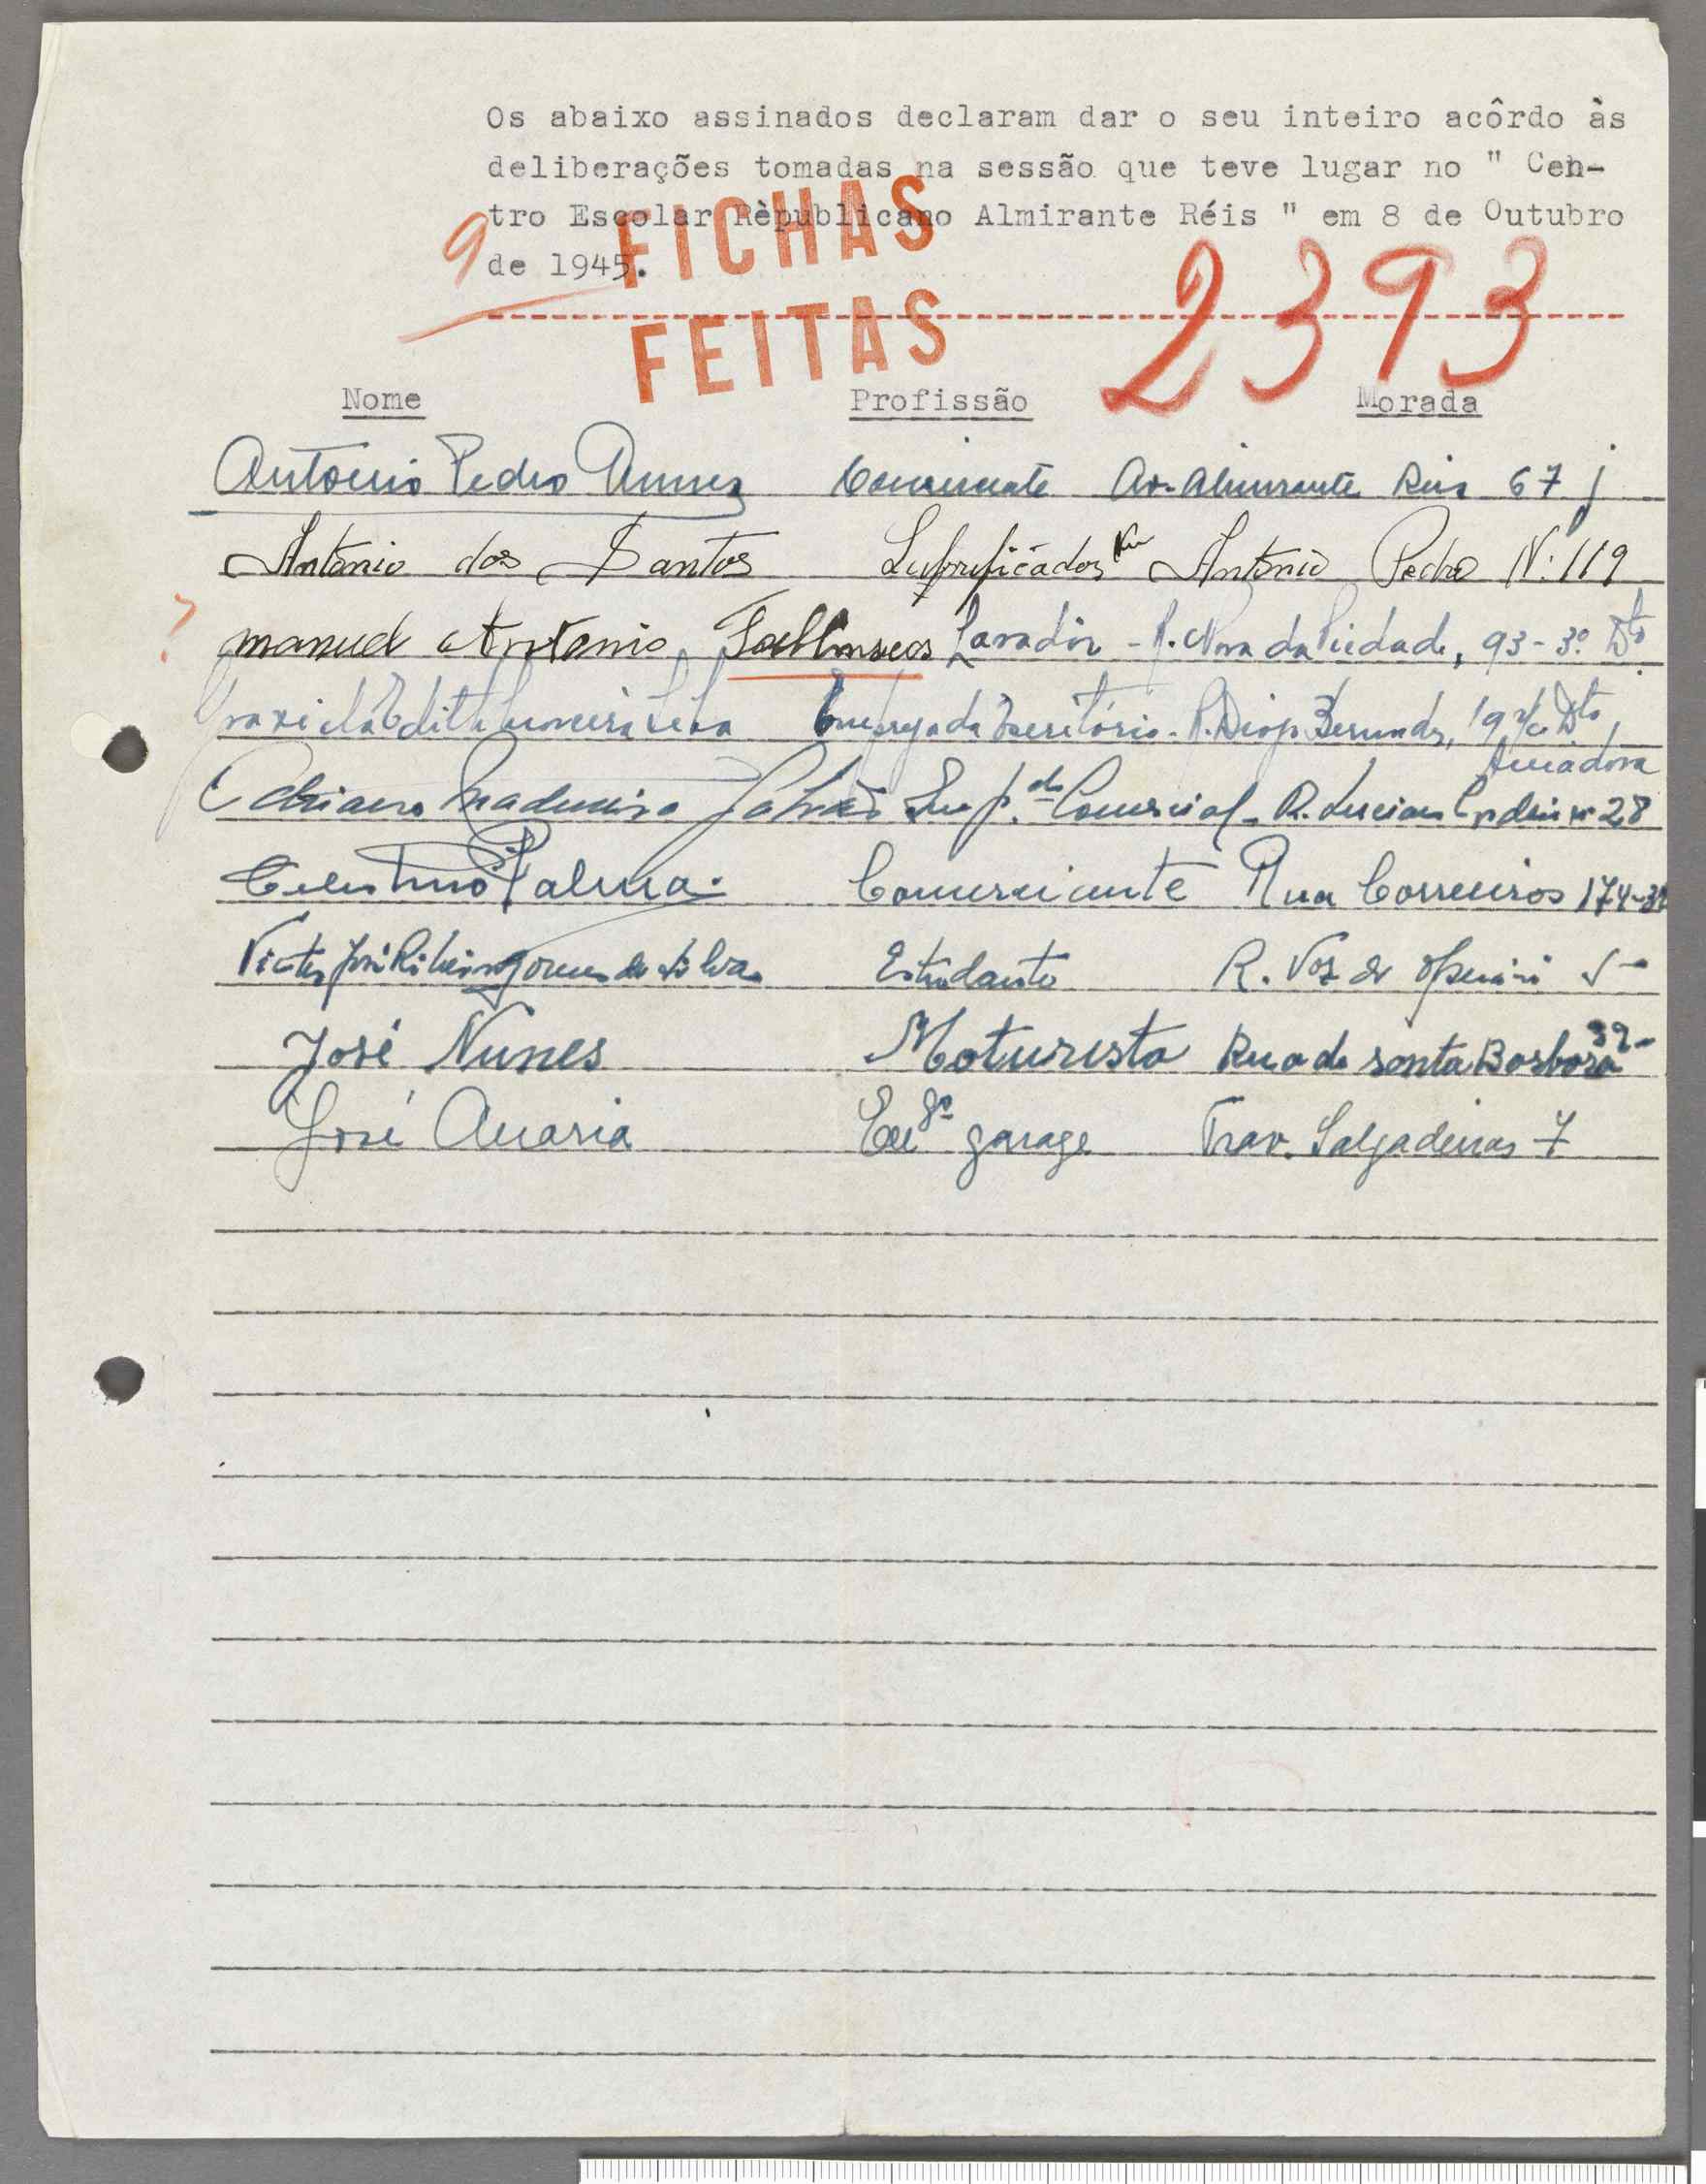 Os abaixo assinados declaram dar o seu inteiro acôrdo às
deliberações tomadas na sessão que teve lugar no " Cen-
tro Escolar Rèpublicano Almirante Réis " em 8 de Outubro
de 1945.
9
FICHAS
FEITAS
2393
Nome Profissão Morada
Antonio Pedro Nunes Comerciante Av. Almirante Reis 67 j
António dos Santos Lubrificador António Pedro N: 119
? manuel Antonio Lavador - R. Nova da Piedade, 93-3º Dto
Edith Empregada Escritório - R. Diogo Bernardes, 19 r/c Dto,
Amadora
Adriano Madureira Empdo Comercial - R. Luciano Cordeiro 28
Celestino Palma Comerciante Rua Correeiros 174-3º
Victor José Ribeiro Gomes da Silva Estudante R. Voz do Operário
José Nunes Moturista Rua de Santa Barbora 39-
José garage Trav. Salgadeiras 7